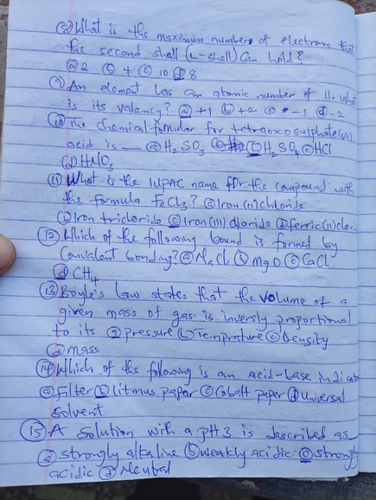 (8) What is the maximum number of electrons that
the second shell (L-shell) can hold?
(a) 2 (b) 4 (c) 10 (d) 8
(9) An element has an atomic number of 11. what
is its valency? (a) +1 (b) +2 (c) -1 (d) -2
(10) The chemical formular for tetraoxosulphate(vi)
acid is — (a) H2SO3 (b) H2SO4 (c) HCl
(d) HNO3
(11) What is the IUPAC name for the compound with
the formula FeCl3? (a) Iron (ii) chloride
(b) Iron trichloride (c) Iron (iii) chloride (d) ferric (ii) chlor
(12) Which of the following bound is formed by
Convalent bonding? (a) NaCl (b) MgO (c) CaCl
(d) CH4
(13) Boyle's Law states that the volume of a
given mass of gas is inversly proportional
to its (a) pressure (b) Temprature (c) Density
(d) mass
(14) Which of the following is an acid-base indicato
(a) Filter (b) Litmus paper (c) Cobalt paper (d) Universal
Solvent
(15) A solution with a pH 3 is described as
(a) strongly alkaline (b) weakly acidic (c) strong
acidic (d) Neutral